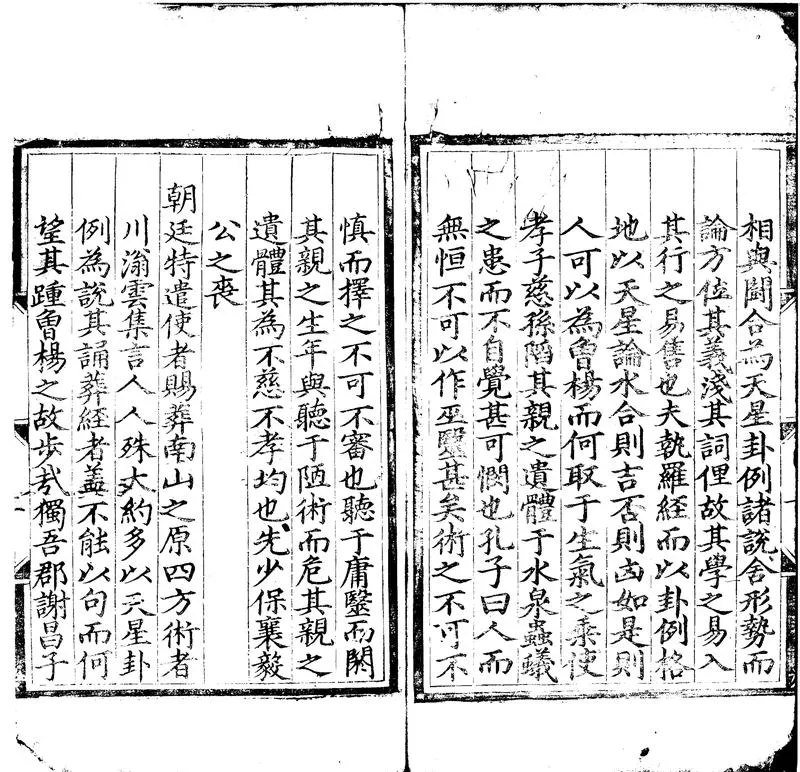 相與鬪合為天星卦例諸說舍形勢而
論方位其義淺其詞俚故其學之易入
其行之易售也夫執羅經而以卦例格
地以天星論水合則吉否則凶如是則
人可以為曾楊而何取于生氣之乘使
孝子慈孫陷其親之遺體于水泉蟲蟻
之患而不自覺甚可憫也孔子曰人而
無恒不可以作巫毉甚矣術之不可不
慎而擇之不可不審也聽于庸毉而閼
其親之生年與聽于陋術而危其親之
遺體其為不慈不孝均也先少保襄毅
公之喪
朝廷特遣使者賜葬南山之原四方術者
川滃雲集言人人殊大約多以天星卦
例為說其誦葬經者蓋不能以句而何
望其踵曾楊之故步哉獨吾郡謝昌子